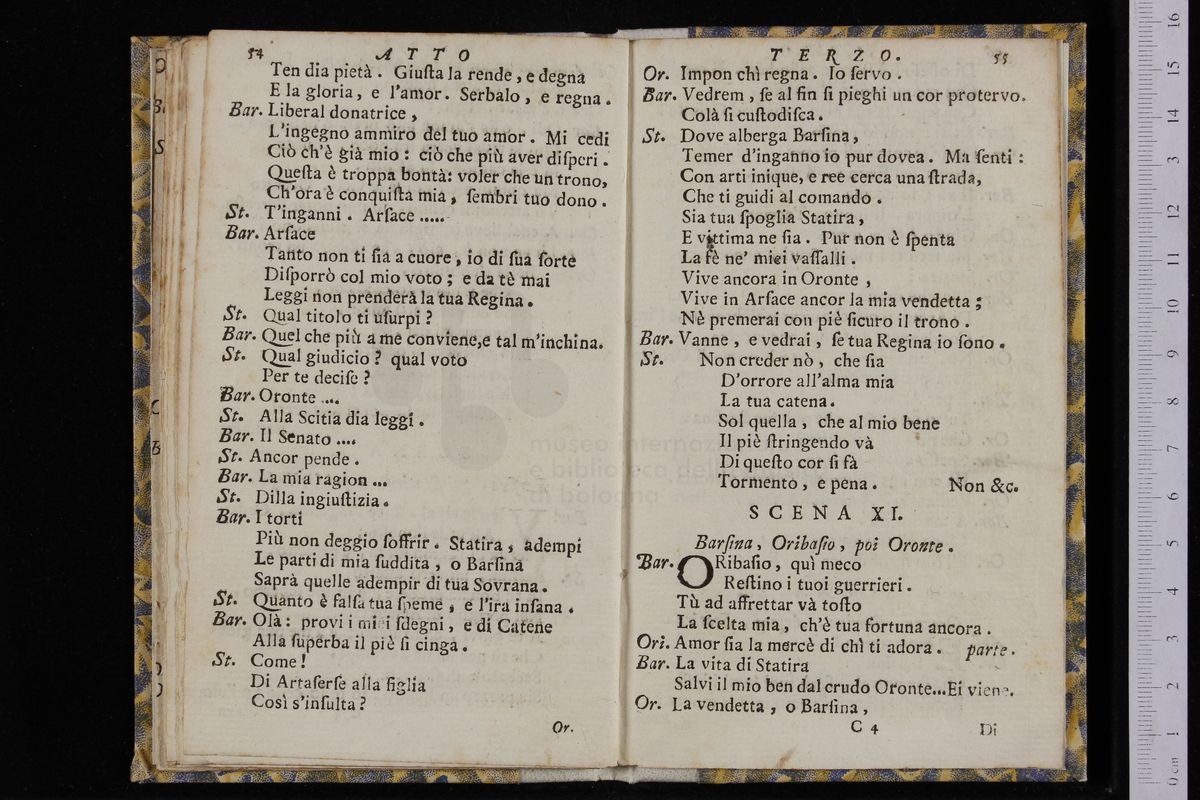 54 ATTO
Ten dia pietà. Giuſta la rende, e degna
E la gloria, e l'amor. Serbalo, e regna.
Bar. Liberal donatrice,
L'ingegno ammiro del tuo amor. Mi cedi
Ciò ch'è già mio: ciò che più aver diſperi.
Queſta è troppa bontà: voler che un trono,
Ch'ora è conquiſta mia, ſembri tuo dono.
St. T'inganni. Arſace .....
Bar. Arſace
Tanto non ti ſia a cuore, io di ſua ſorte
Diſporrò col mio voto; e da tè mai
Leggi non prenderà la tua Regina.
St. Qual titolo ti uſurpi?
Bar. Quel che più a me conviene, e tal m'inchina.
St. Qual giudicio? qual voto
Per te deciſe?
Bar. Oronte ....
St. Alla Scitia dia leggi.
Bar. Il Senato ....
St. Ancor pende.
Bar. La mia ragion ...
St. Dilla ingiuſtizia.
Bar. I torti
Più non deggio ſoffrir. Statira, adempi
Le parti di mia ſuddita, o Barſina
Saprà quelle adempir di tua Sovrana.
St. Quanto è falſa tua ſpeme, e l'ira inſana.
Bar. Olà: provi i miei ſdegni, e di Catene
Alla ſuperba il piè ſi cinga.
St. Come!
Di Artaſerſe alla figlia
Così s'inſulta?
Or.
TERZO. 55
Or. Impon chì regna. Io ſervo.
Bar. Vedrem, ſe al fin ſi pieghi un cor protervo.
Colà ſi cuſtodiſca.
St. Dove alberga Barſina,
Temer d'inganno io pur dovea. Ma ſenti:
Con arti inique, e ree cerca una ſtrada,
Che ti guidi al comando.
Sia tua ſpoglia Statira,
E vittima ne ſia. Pur non è ſpenta
La fè ne' miei vaſſalli.
Vive ancora in Oronte,
Vive in Arſace ancor la mia vendetta;
Nè premerai con piè ſicuro il trono.
Bar. Vanne, e vedrai, ſe tua Regina io ſono.
St. Non creder nò, che ſia
D'orrore all'alma mia
La tua catena.
Sol quella, che al mio bene
Il piè ſtringendo và
Di queſto cor ſi fà
Tormento, e pena. Non &c.
SCENA XI.
Barſina, Oribaſio, poi Oronte.
Bar. ORibaſio, quì meco
Reſtino i tuoi guerrieri.
Tù ad affrettar và toſto
La ſcelta mia, ch'è tua fortuna ancora.
Ori. Amor ſia la mercè di chì ti adora. parte.
Bar. La vita di Statira
Salvi il mio ben dal crudo Oronte...Ei viene.
Or. La vendetta, o Barſina,
C 4 Di